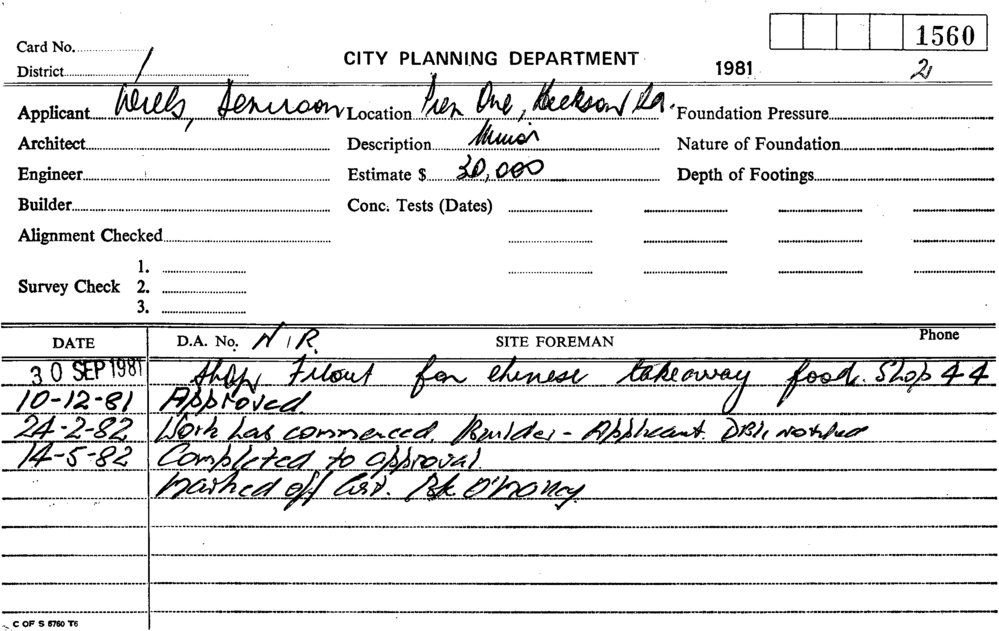 1560
Card No.
CITY PLANNING DEPARTMENT
District 1
1981 2
Applicant Location Pier One, Hickson Rd. Foundation Pressure
Architect Description Minor Nature of Foundation
Engineer Estimate $ 30,000 Depth of Footings
Builder Conc. Tests (Dates)
Alignment Checked
1.
Survey Check 2.
3.
DATE D.A. No. N.R. SITE FOREMAN Phone
30 SEP 1981 Shop Fitout for chinese takeaway food. Shop 44
10-12-81 Approved
24-2-82 Work has commenced. Builder - Applicant. notified
14-5-82 Completed to approval.
marked off
C OF S 5760 T6